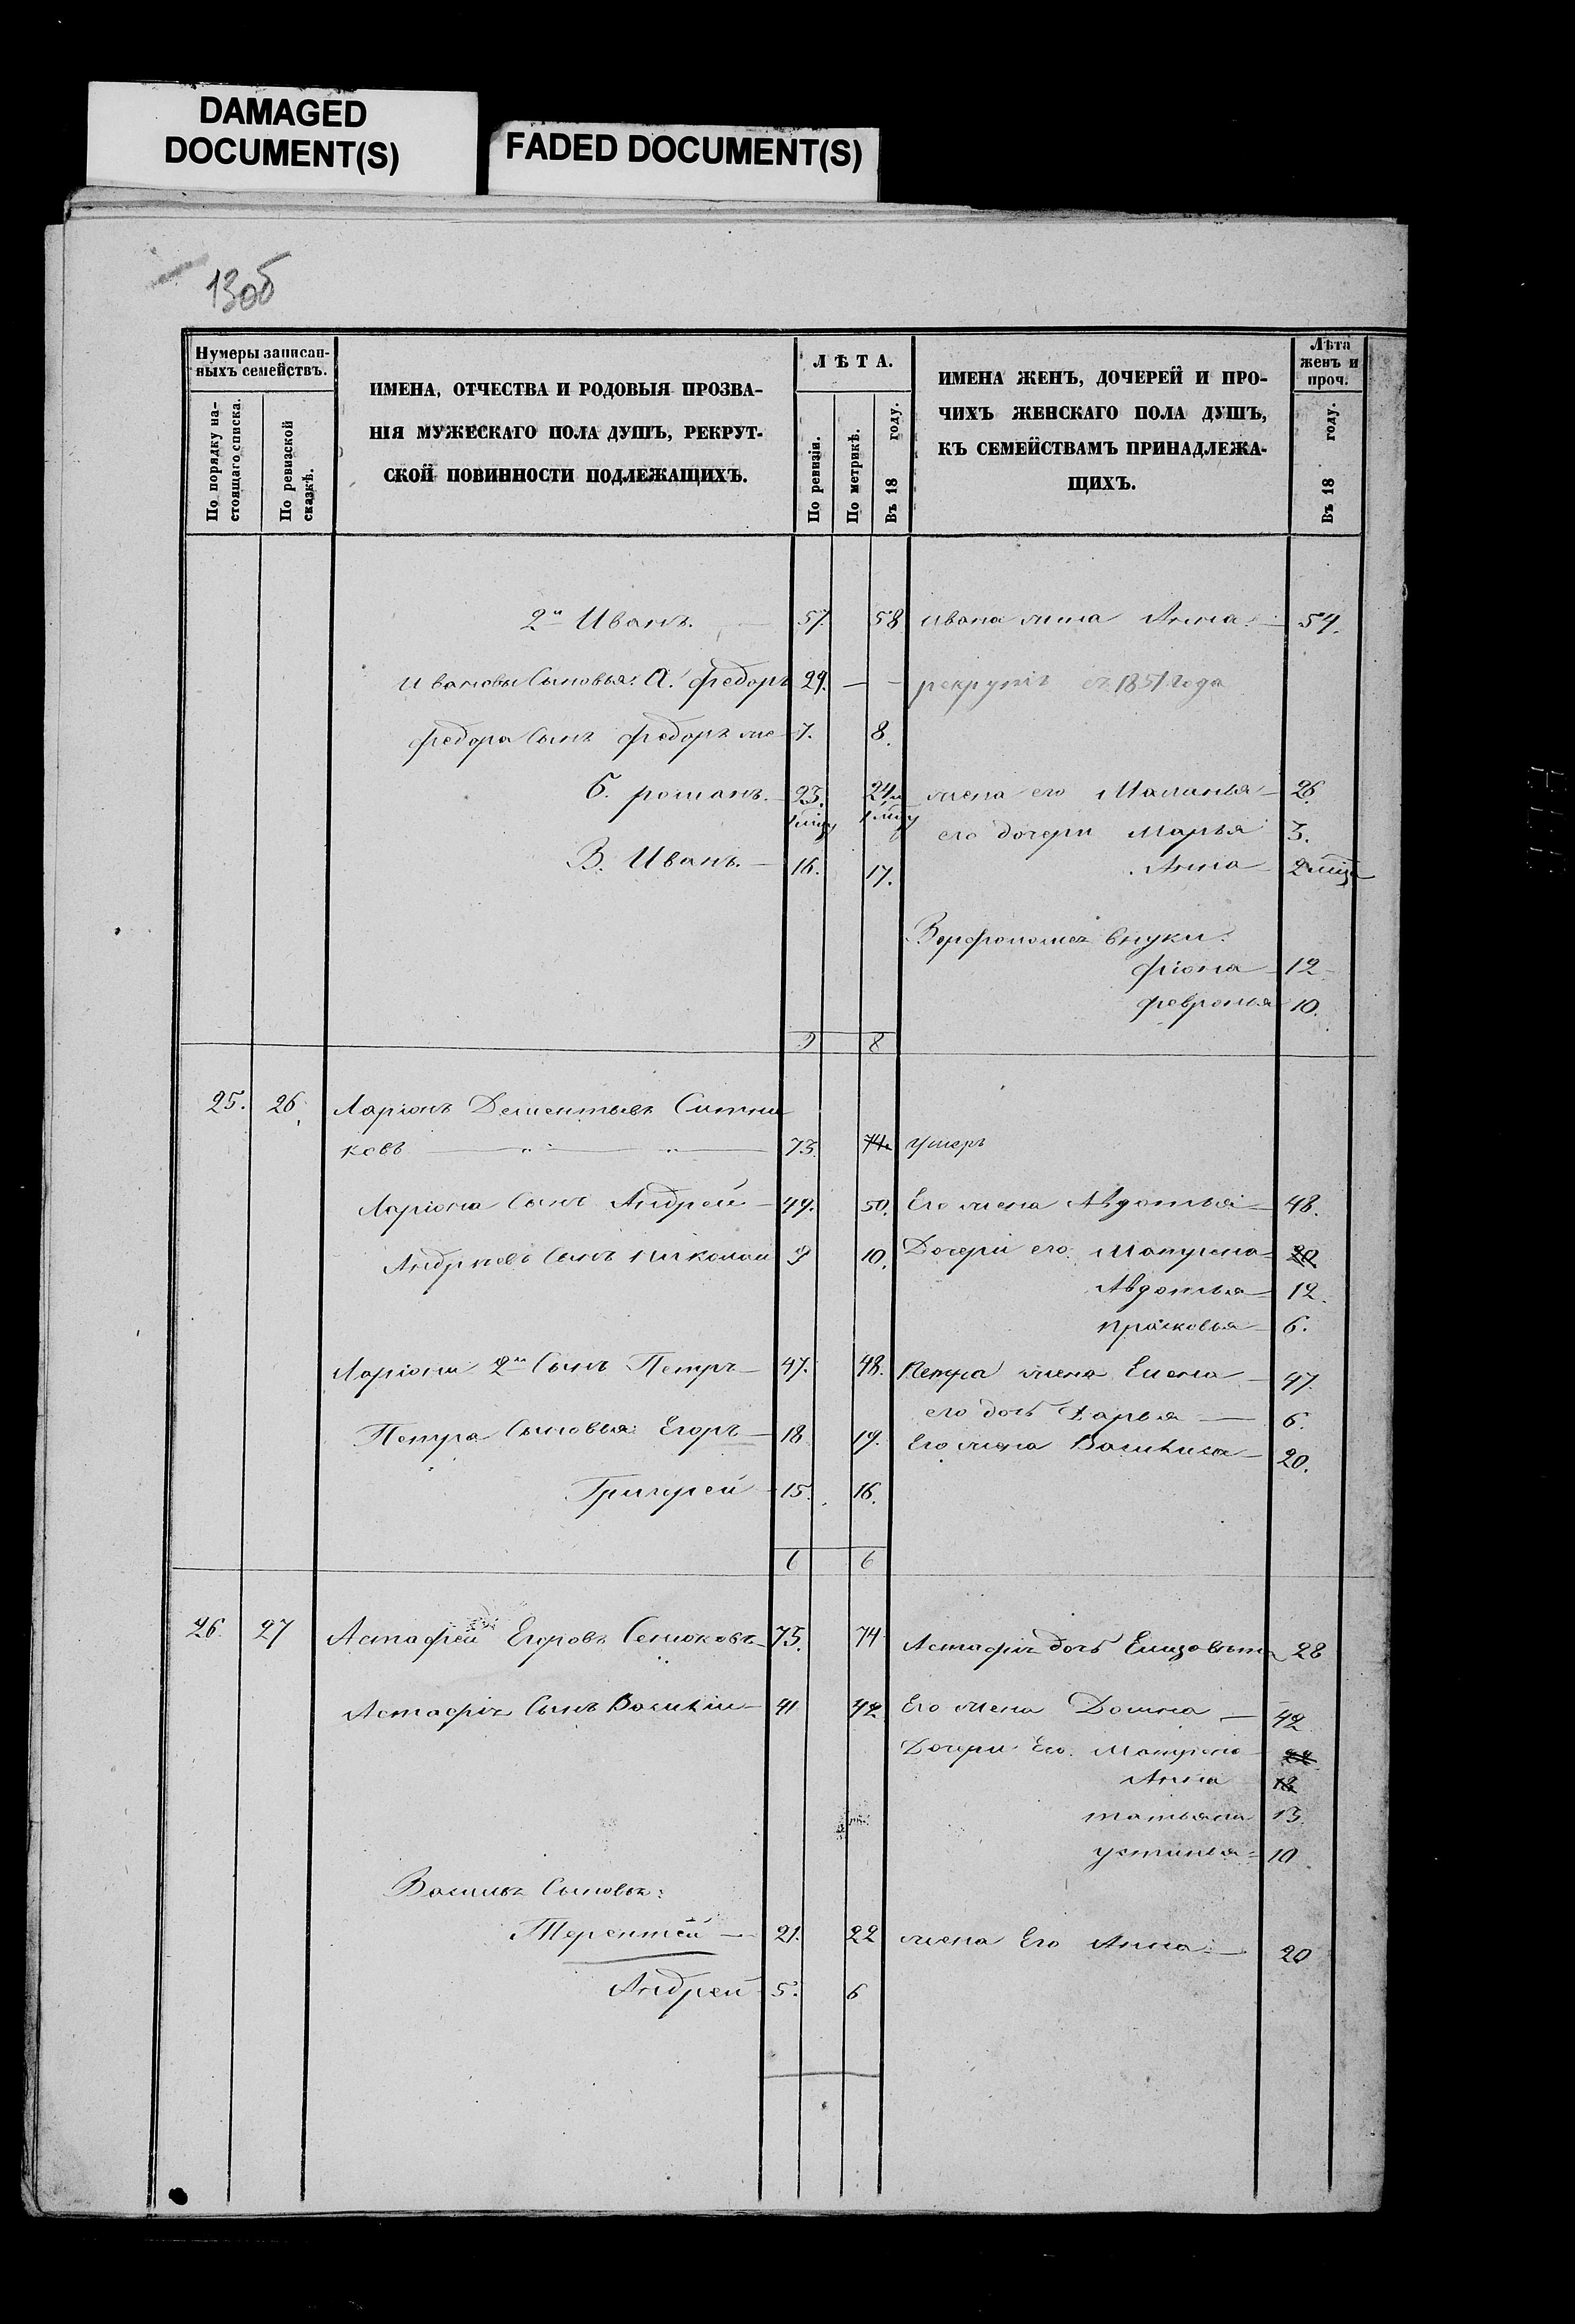 DAMAGED
DOCUMENT(S)
FADED DOCUMENT(S)
13об
Нумеры записан-
ныхъ семействъ.
По порядку на-
стоящаго списка.
По ревизской
сказкѣ.
ИМЕНА, ОТЧЕСТВА И РОДОВЫЯ ПРОЗВА-
НІЯ МУЖЕСКАГО ПОЛА ДУШЪ, РЕКРУТ-
СКОЙ ПОВИННОСТИ ПОДЛЕЖАЩИХЪ.
ЛѢТА.
По ревизіи.
По метрикѣ.
Въ 18 году.
ИМЕНА ЖЕНЪ, ДОЧЕРЕЙ И ПРО-
ЧИХЪ ЖЕНСКАГО ПОЛА ДУШЪ,
КЪ СЕМЕЙСТВАМЪ ПРИНАДЛЕЖА-
ЩИХЪ.
Лѣта
женъ и
проч.
Въ 18 году.
2й Иванъ. 57. 58 ивана жина Анна. 57.
ивановы Сыновья: А. федоръ 29. — — рекрутъ съ 1851 года
федора Сынъ федоръ же 7. 8.
Б. романъ. 23. 24 жена его Маланья 26.
его дочери Марья 3.
В. Иванъ. 16. 17. Анна 2 мѣц
внуки:
фіона 12
февронья 10.
9 8
25. 26. Ларіонъ Дементьевъ Ситни
ковъ 73. 74. умеръ
Ларіона Сынъ Андрей 49. 50. Его жена Авдотья 48.
Андреевъ Сынъ николай 9 10. Дочери его: Матрена 20
Авдотья 12.
прасковья 6.
Ларіона 2й Сынъ Петръ 47. 48. Петра жена Елена 47.
его дочь Дарья 6.
Петра Сыновья: Егоръ 18 19. Его жена Василиса 20.
Григорей 15. 16.
6 6
26. 27 Астафей Егоровъ Сенюковъ 73. 74 Астафья дочь Елизовета 28
Астафья Сынъ Василій 41 42 Его жена Домна 42
Дочери Его: Матрена 22
Анна 18
татьяна 13.
устинья 10
Васильи Сыновья:
Терентей 21. 22 жена Его Анна 20
Андрей 5. 6